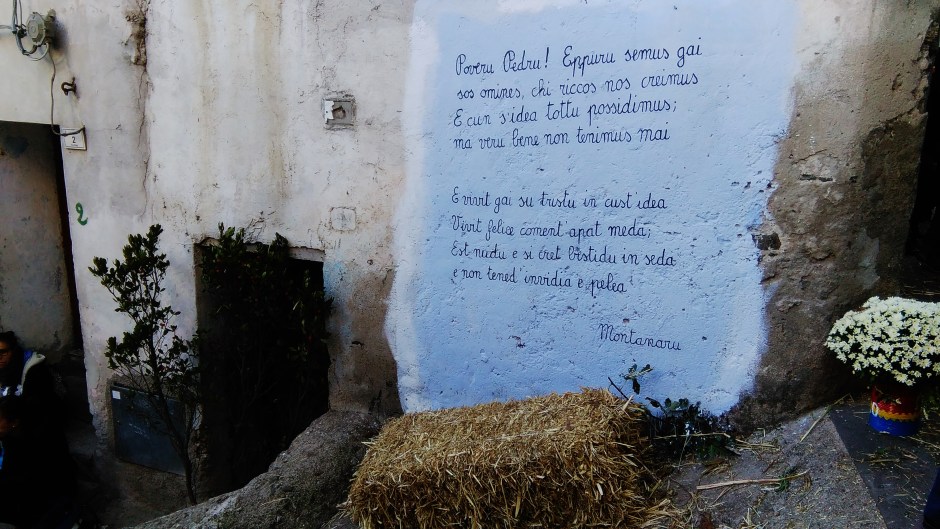 Poveru Pedru! Eppuru semus gai
sos omines, chi riccos nos creimus
E cun s'idea tottu possidimus;
ma veru bene non tenimus mai
E vivit gai su tristu in cust'idea
Vivit felice coment'apat meda;
Est nudu e si cret bistidu in seda
e non tened'invidia e pelea
Montanaru
2
2